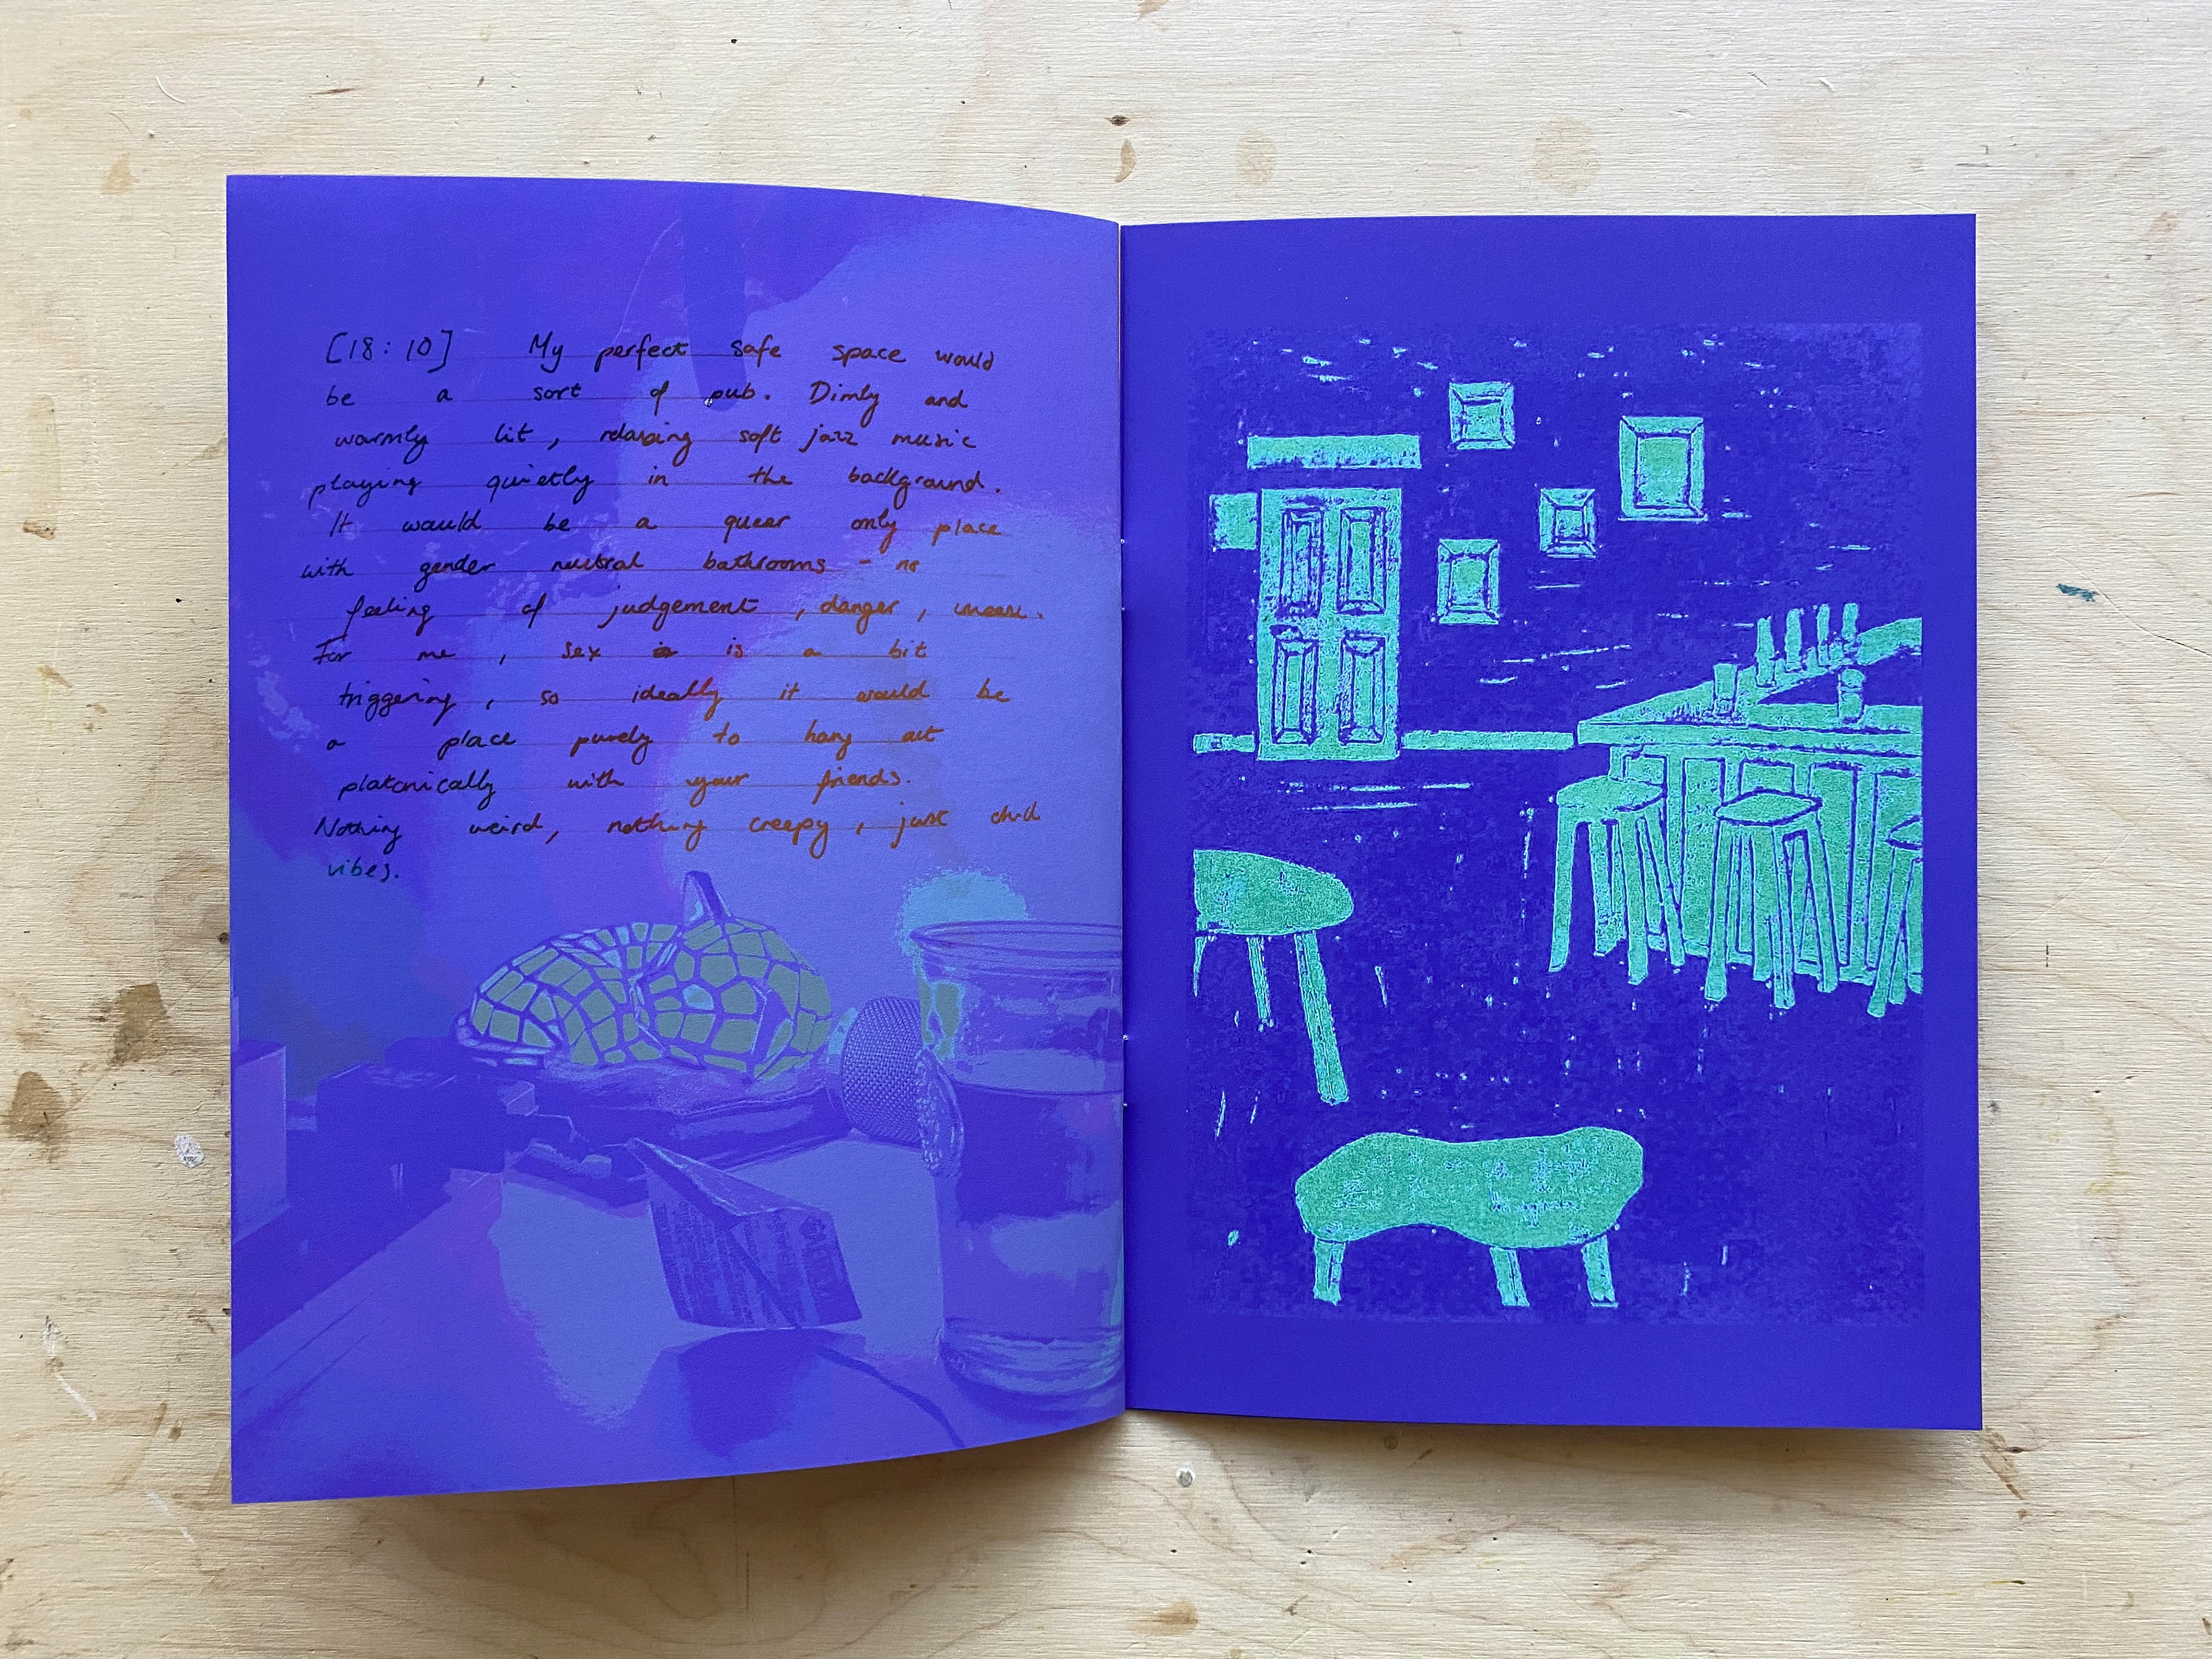 [18:10] My perfect safe space would
be a sort of pub. Dimly and
warmly lit, relaxing soft jazz music
playing quietly in the background.
It would be a queer only place
with gender neutral bathrooms - no
feeling of judgement, danger, unease.
For me, sex is a bit
triggering, so ideally it would be
a place purely to hang out
platonically with your friends.
Nothing weird, nothing creepy, just chill
vibes.